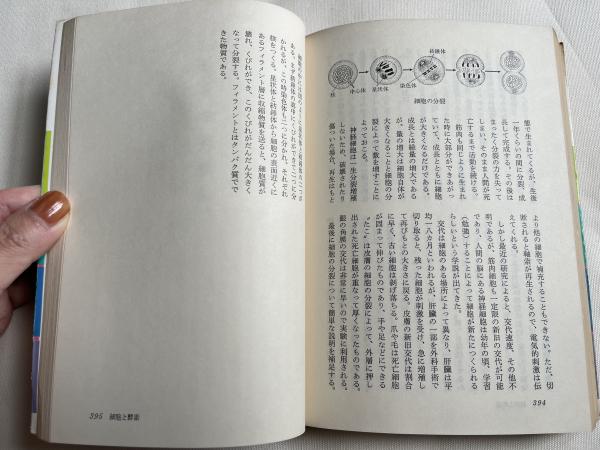 紡錘体
核
中心体
星状体
染色体
細胞の分裂
態で生まれてくるが、生後
一年くらいの間に分裂、成
長して完成する。その後は
まったく分裂の力を失って
しまい、そのまま人間が死
亡するまで活動を続ける。
筋肉も同じように生まれ
た時に大部分ができあがっ
ていて、成長とともに細胞
が大きくなるだけである。
成長とは総量の増大である
が、量の増大は細胞自体が
大きくなることと細胞の分
裂によって数を増すことに
よっておこる。
神経細胞は一生分裂増殖
しないため、破壊されたり
傷ついた場合、再生はもと
より他の細胞で補充することもできない。ただ、切
断されると軸索が再生されるので、電気的刺激は伝
えてくれる。
しかし最近の研究によると、交代速度、その他不
明であるが、筋肉細胞も一定限の新旧の交代が可能
であり、人間の脳にある神経細胞は幼年の頃、学習
(勉強)することによって細胞が新たにつくられる
らしいという学説が出てきた。
交代は細胞のある場所によって異なり、肝臓は平
均一八カ月といわれるが、肝臓の一部を外科手術で
切り取ると、残った細胞が刺激を受け、急に増殖し
て再びもとの大きさに戻る。皮膚の新旧交代は割合
に早く、古い細胞は剥げ落ちる。爪や毛は死亡細胞
が固まって伸びたものであり、手や足などにできる
“たこ”は皮膚の細胞の分裂によって、外層に押し
出された死亡細胞が重なって厚くなったものである。
眼の角膜の交代は非常に早いので実験に利用される。
最後に細胞の分裂について簡単な説明を補足する。
394
ある。まず核膜体の赤道にくびれができて、二つに
わかれるが、この時染色体も二つに分かれ、それぞれ
核をつくる。星状体と紡錘体から細胞の表面近くに
あるフィラメント層に収縮物質を送ると、細胞質が
壊れ、くびれができ、このくびれがだんだん大きく
なって分裂する。フィラメントとはタンパク質でで
きた物質である。
395 細胞と酵素